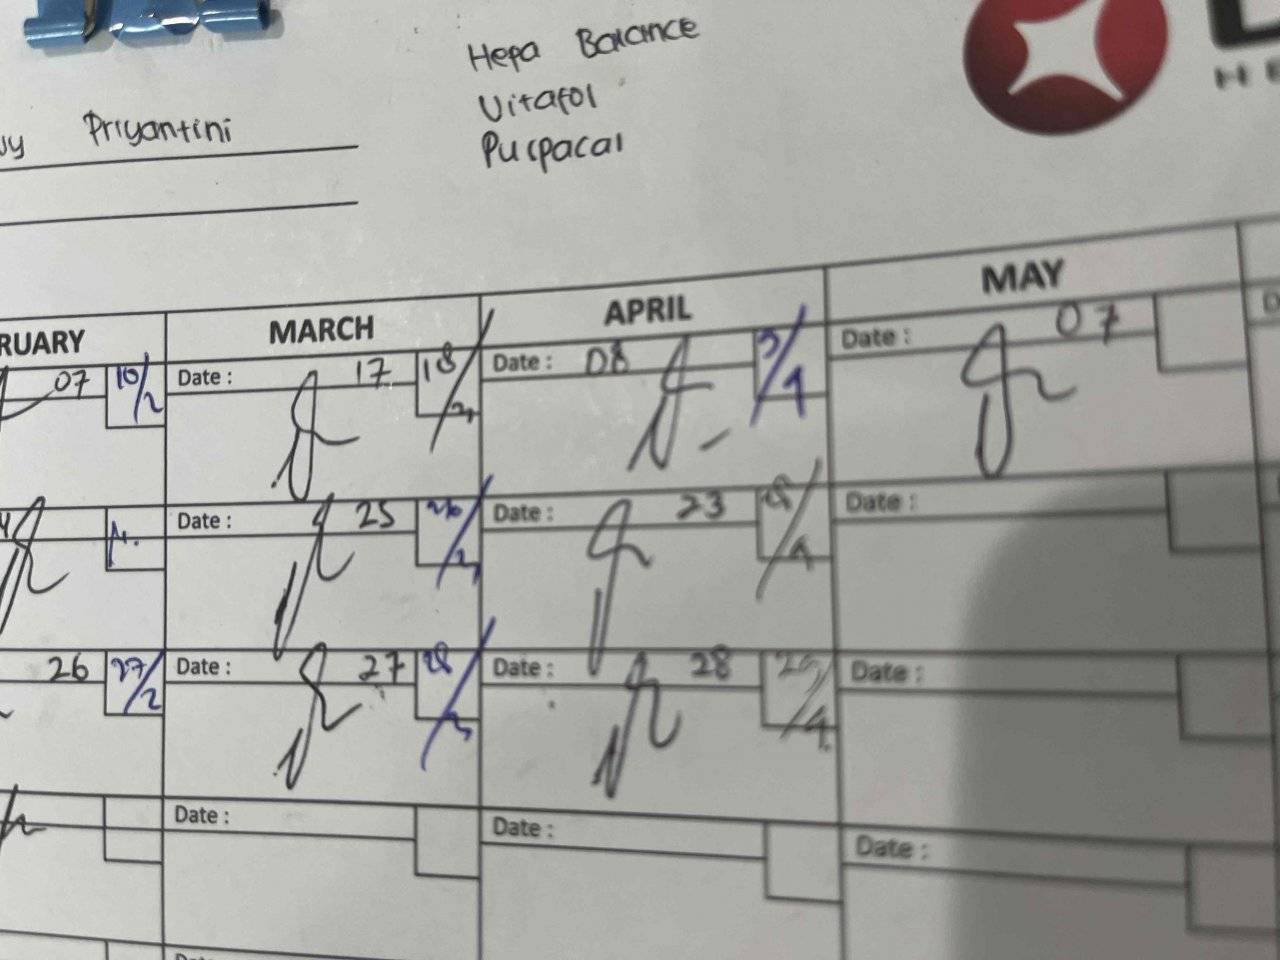 Hepa Balance
Vitafol
Puspacal
Priyantini
RUARY MARCH APRIL MAY
07 10/2 Date : 17 18/3 Date : 08 9/4 Date : 07
Date : 25 26/3 Date : 23 Date : 
26 27/2 Date : 27 28/3 Date : 28 29/4 Date :
Date : Date : Date :